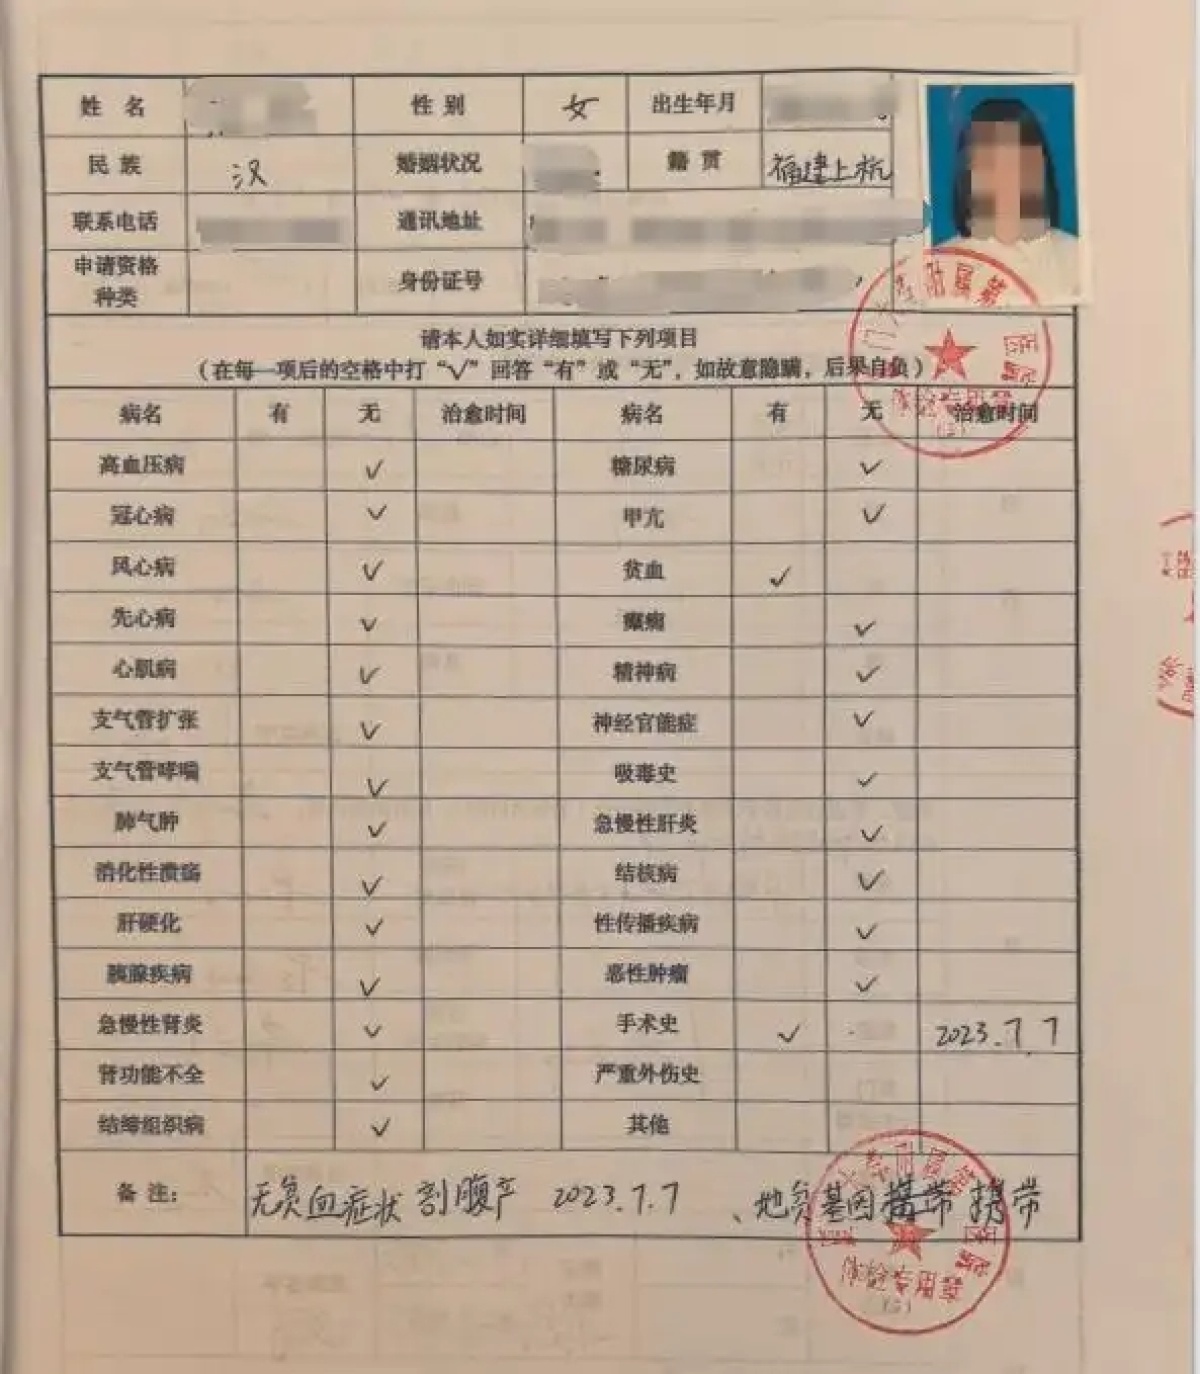 姓 名 性 别 女 出生年月
民 族 汉 婚姻状况 籍 贯 福建上杭
联系电话 通讯地址
申请资格种类 身份证号
请本人如实详细填写下列项目
（在每一项后的空格中打“√”回答“有”或“无”，如故意隐瞒，后果自负）
病名 有 无 治愈时间 病名 有 无 治愈时间
高血压病 √ 糖尿病 √
冠心病 √ 甲亢 √
风心病 √ 贫血 √
先心病 √ 癫痫 √
心肌病 √ 精神病 √
支气管扩张 √ 神经官能症 √
支气管哮喘 √ 吸毒史 √
肺气肿 √ 急慢性肝炎 √
消化性溃疡 √ 结核病 √
肝硬化 √ 性传播疾病 √
胰腺疾病 √ 恶性肿瘤 √
急慢性肾炎 √ 手术史 √ 2023.7.7
肾功能不全 √ 严重外伤史
结缔组织病 √ 其他
备 注： 无贫血症状 剖腹产 2023.7.7 、地贫基因携带 携带
附属第
医院
体检专用章
(2)